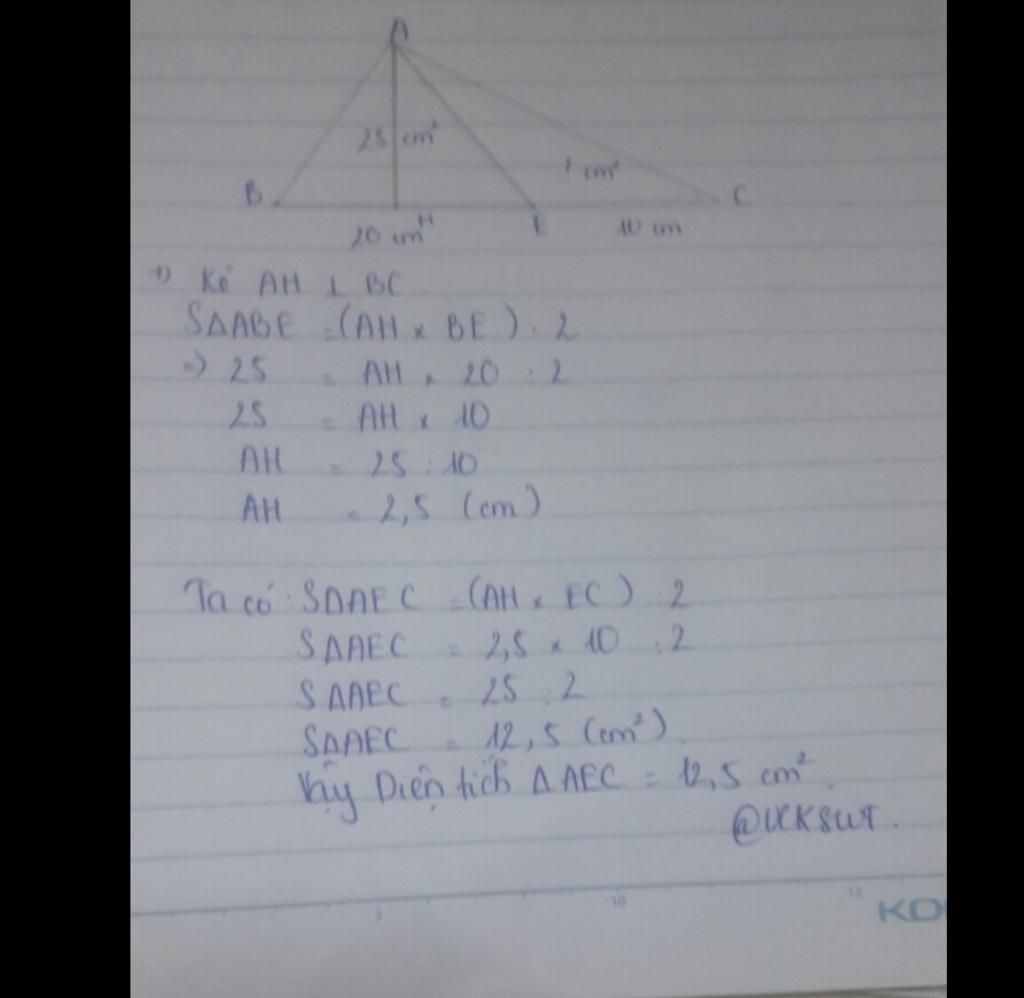 A
25 cm²
? cm²
B
H
E
C
20 cm
10 cm
1) Kẻ AH ⊥ BC
SΔABE = (AH x BE) : 2
=> 25 = AH x 20 : 2
25 = AH x 10
AH = 25 : 10
AH = 2,5 (cm)
Ta có : SΔAEC = (AH x EC) : 2
SΔAEC = 2,5 x 10 : 2
SΔAEC = 25 : 2
SΔAEC = 12,5 (cm²).
Vậy Diện tích ΔAEC = 12,5 cm².
5
10
15